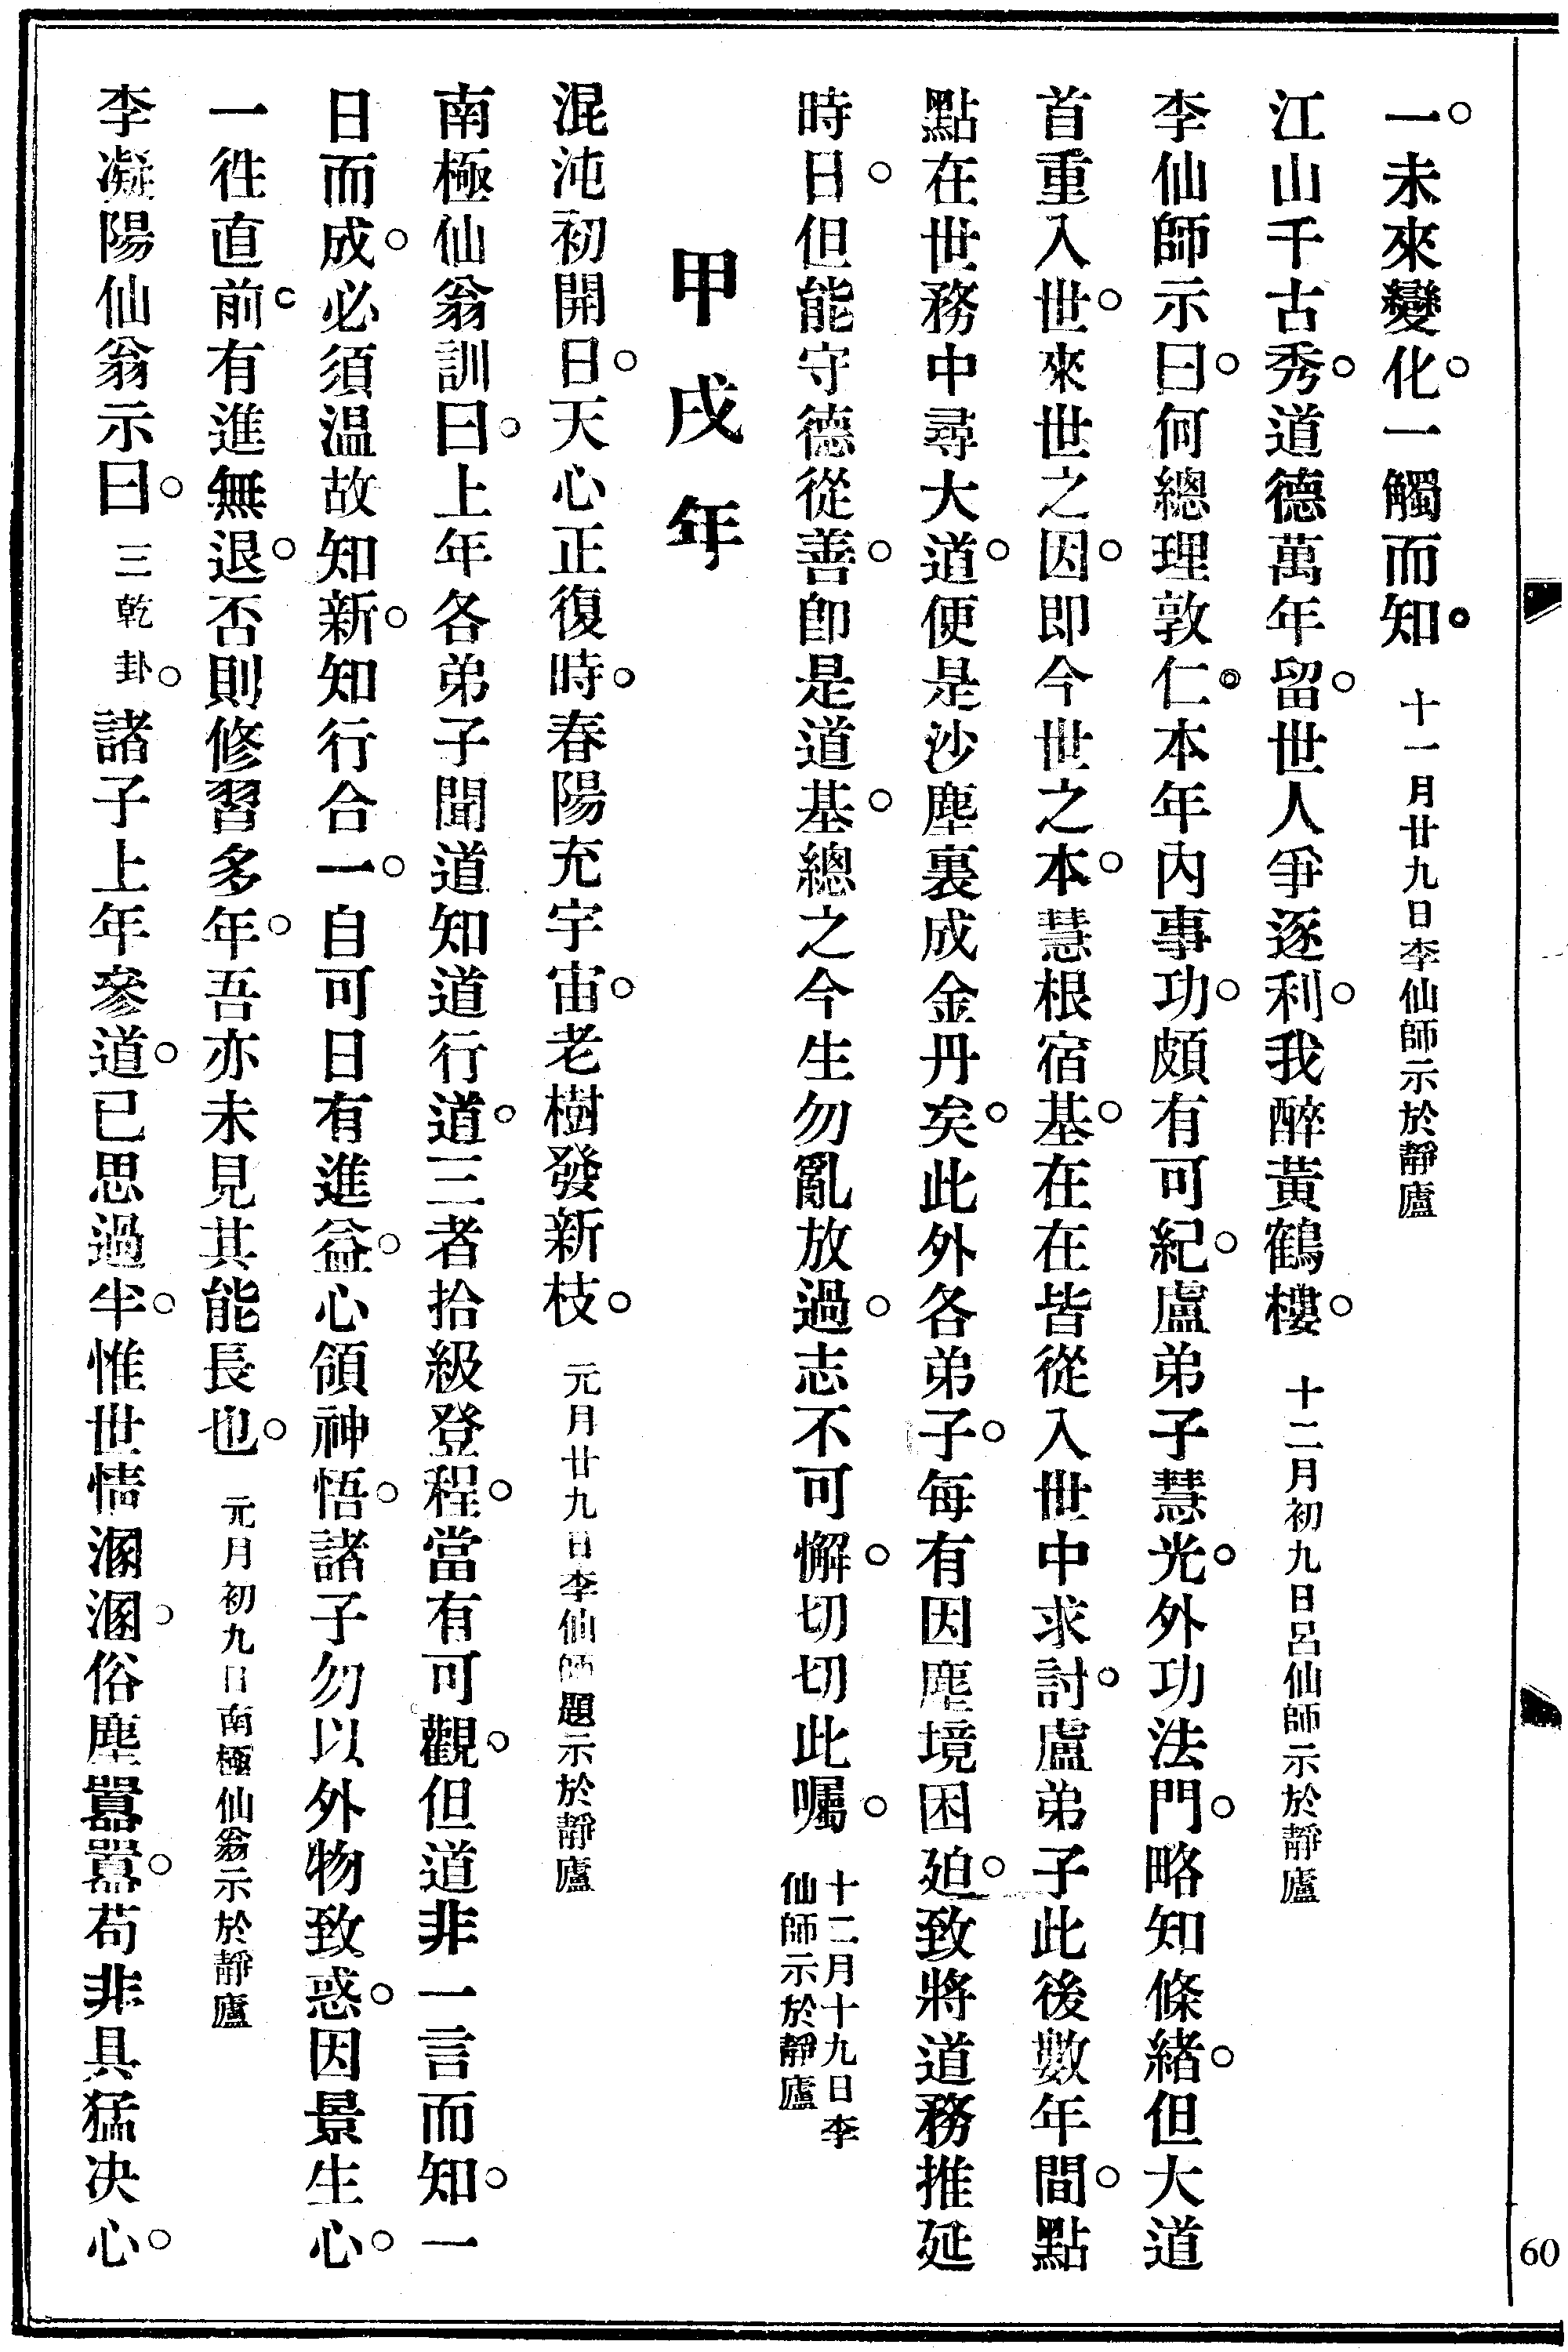 一。未來變化。一觸而知。 十一月廿九日李仙師示於靜廬
江山千古秀。道德萬年留。世人爭逐利。我醉黃鶴樓。 十二月初九日呂仙師示於靜廬
李仙師示曰。何總理敦仁。本年內事功。頗有可紀。盧弟子慧光。外功法門。略知條緒。但大道
首重入世。來世之因。即今世之本。慧根宿基。在在皆從入世中求討。盧弟子此後數年間。點
點在世務中尋大道。便是沙塵裏成金丹矣。此外各弟子。每有因塵境困廹。致將道務推延
時日。但能守德從善。卽是道基。總之今生勿亂放過。志不可懈。切切此囑。 十二月十九日李
仙師示於靜廬
甲戌年
混沌初開日。天心正復時。春陽充宇宙。老樹發新枝。 元月廿九日李仙師題示於靜廬
南極仙翁訓曰。上年各弟子聞道知道行道。三者拾級登程。當有可觀。但道非一言而知。一
日而成。必須温故知新。知行合一。自可日有進益。心領神悟。諸子勿以外物致惑。因景生心。
一徃直前。有進無退。否則修習多年。吾亦未見其能長也。 元月初九日南極仙翁示於靜廬
李凝陽仙翁示曰。 三乾卦。諸子上年參道。已思過半。惟世情溷溷。俗塵囂囂。苟非具猛决心。
60